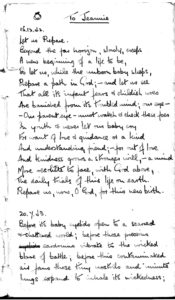 To Jeannie
Let us Prepare.
Beyond the far horizon, slowly, creeps
A new beginning of a life to be,
So let us, while the unborn baby sleeps,
Prepare a path in God, — and let us see
That all its infant fears & childish woes
Are banished from its troubled mind; our eye —
Our parent eye — must watch & check these foes
In youth & never let our baby cry
For want of love & guidance or a kind
And understanding friend; — for out of love
And kindness grows a stronger will, — a mind
More to face, with Lord above,
The daily trials of this life on earth.
Prepare us, now, O God, for this new birth.
Before its baby eyelids open to a scarred
& world; before those
to the wicked
blare of battle; before this contaminated
air fans those tiny nostrils and minute
lungs expand to inhale its wickedness;